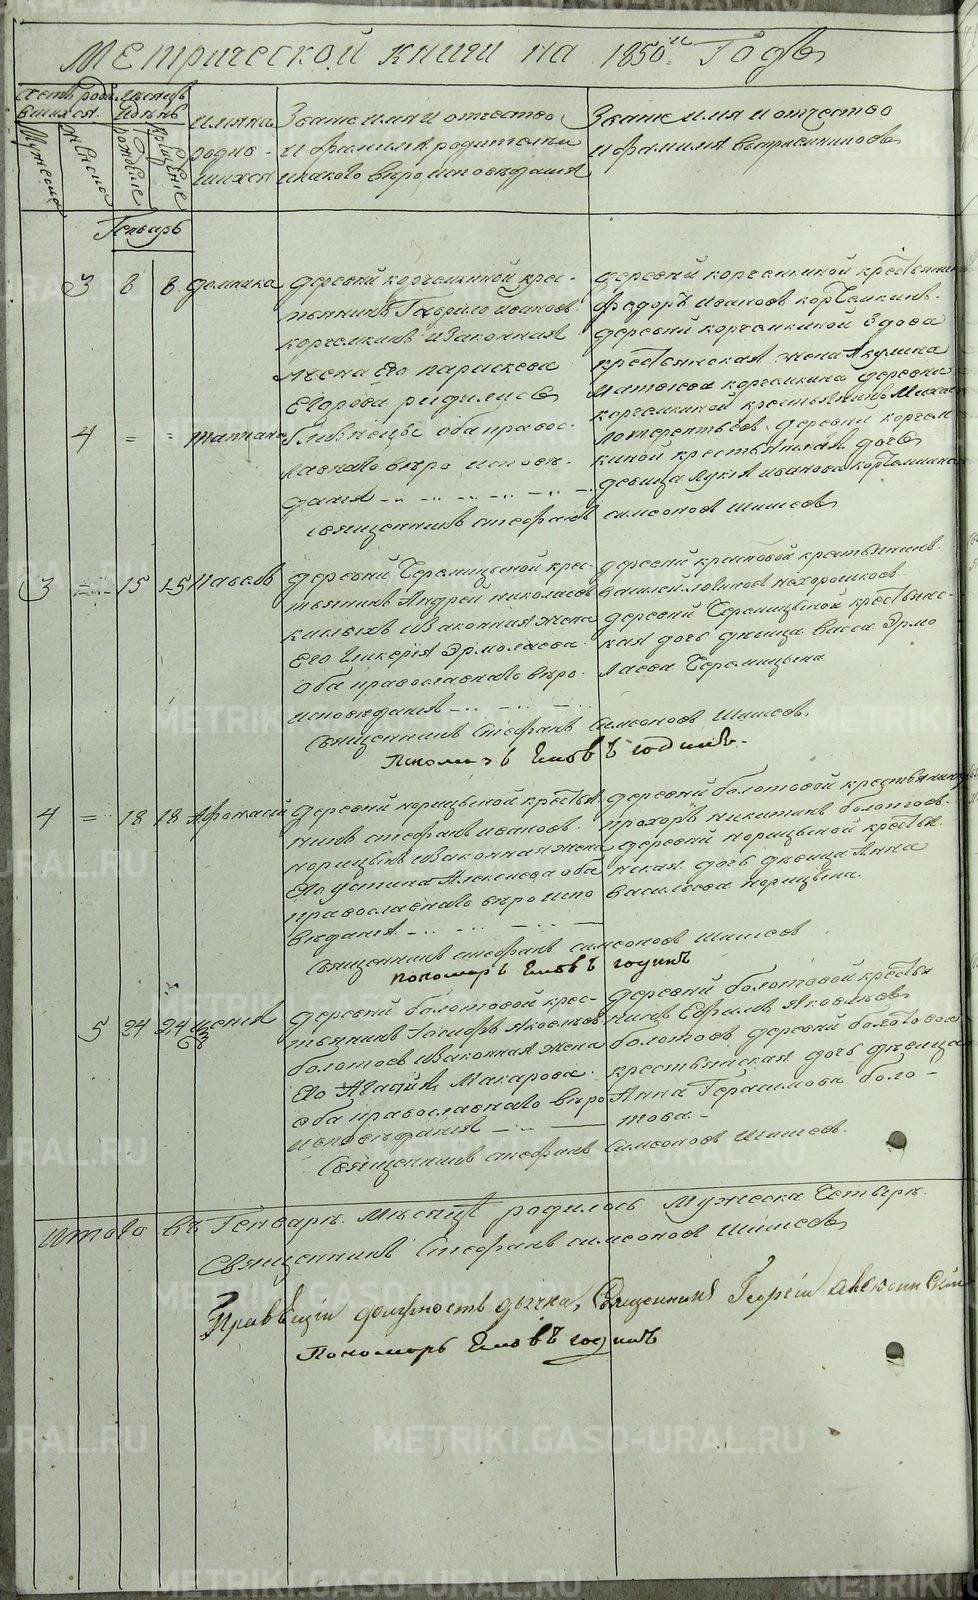 Метрической книги на 1850й Годъ
Счетъ роди
вшихся.
Мѣсяцъ
и день
Мужеска
Женска
рожденіе
крещеніе
Имяна
родив-
шихся
Званіе имя и отчество
и фамилія родителей
и какого вѣроисповѣданія
Званіе имя и отчество
и фамилія воспріемниковъ
Генварь
3 8 8. Домника
деревни корчемкиной крес-
тьянинъ Гаврило ивановъ
корчемкинъ и законная
жена его параскева
Егорова родились
деревни корчемкиной крестьянинъ
федоръ ивановъ корчемкинъ.
деревни корчемкиной вдова
крестьянская жена Акулина
матвѣева корчемкина деревни
корчемкиной крестьянинъ
4 = = татіана
близнецы оба правос-
лавнаго вѣро исповѣ-
данія
деревни корчем
киной крестьянская дочь
девица Лукія иванова корчемкина
священникъ стефанъ симеоновъ шишевъ
3 = 15 15 Павелъ
деревни Черемицыной крес-
тьянинъ Андрей николаевъ
и законная жена
его Гликерія Эрмолаева
оба православнаго вѣро
исповѣданія
деревни крестьянинъ
василей логиновъ нехорошковъ
деревни Черемицыной крестьянс-
кая дочь дѣвица васса Эрмо
лаева Черемицына
священникъ Стефанъ Симеоновъ Шишевъ
Пономарь
4 = 18 18 Афонасій
деревни норицыной крестья
нинъ стефанъ ивановъ
норицынъ и законная жена
его устина Алексеева оба
православнаго вѣро испо
вѣданія
деревни болотовой крестьянинъ
прохоръ никитинъ болотовъ.
деревни норицыной крестья
нская дочь дѣвица Анна
васильева норицына.
священникъ стефанъ симеоновъ шишевъ
пономарь
5 24 24 ксенія
деревни болотовой крес-
тьянинъ Яковлевъ
болотовъ и законная жена
его Агафія Макарова.
оба православнаго вѣро
исповѣданія
деревни болотовой крестья
нинъ Ефимъ Яковлевъ
болотовъ деревни болотовой
крестьянская дочь дѣвица
Анна Герасимова боло-
това.-
Священникъ стефанъ Симеоновъ Шишевъ.
итого въ Генварѣ. Мѣсяцѣ родилось Мужеска Четыре.
Священникъ Стефанъ симеоновъ Шишевъ
Правящій должность дьячка, Священникъ Георгій
Пономарь
METRIKI.GASO-URAL.RU